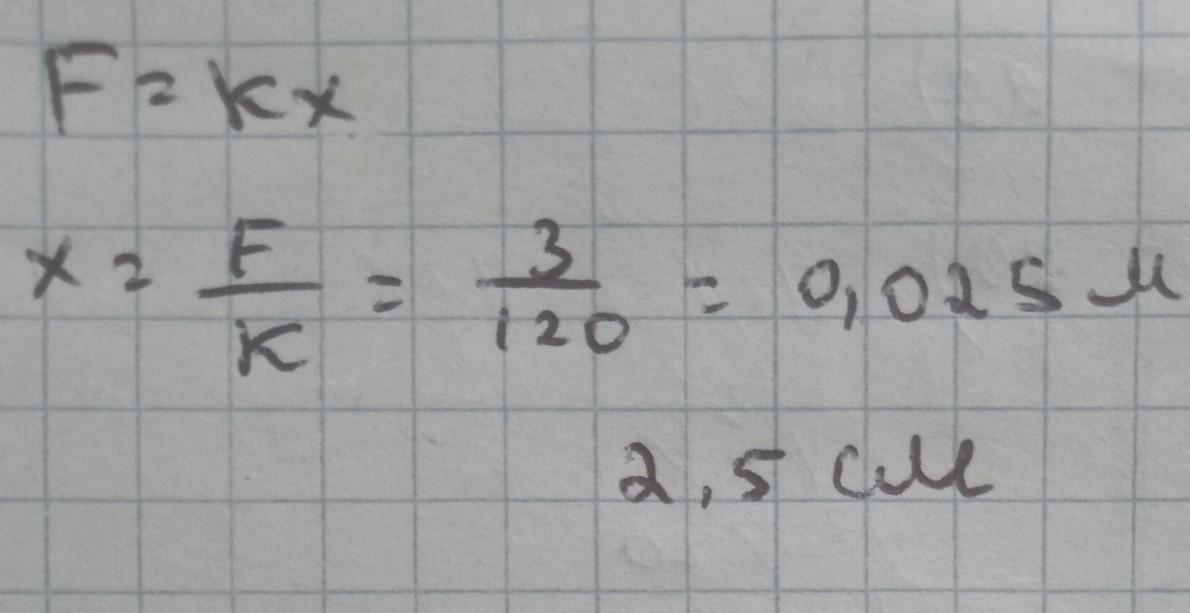 F = kx
x = F/k = 3/120 = 0,025 м
2,5 см